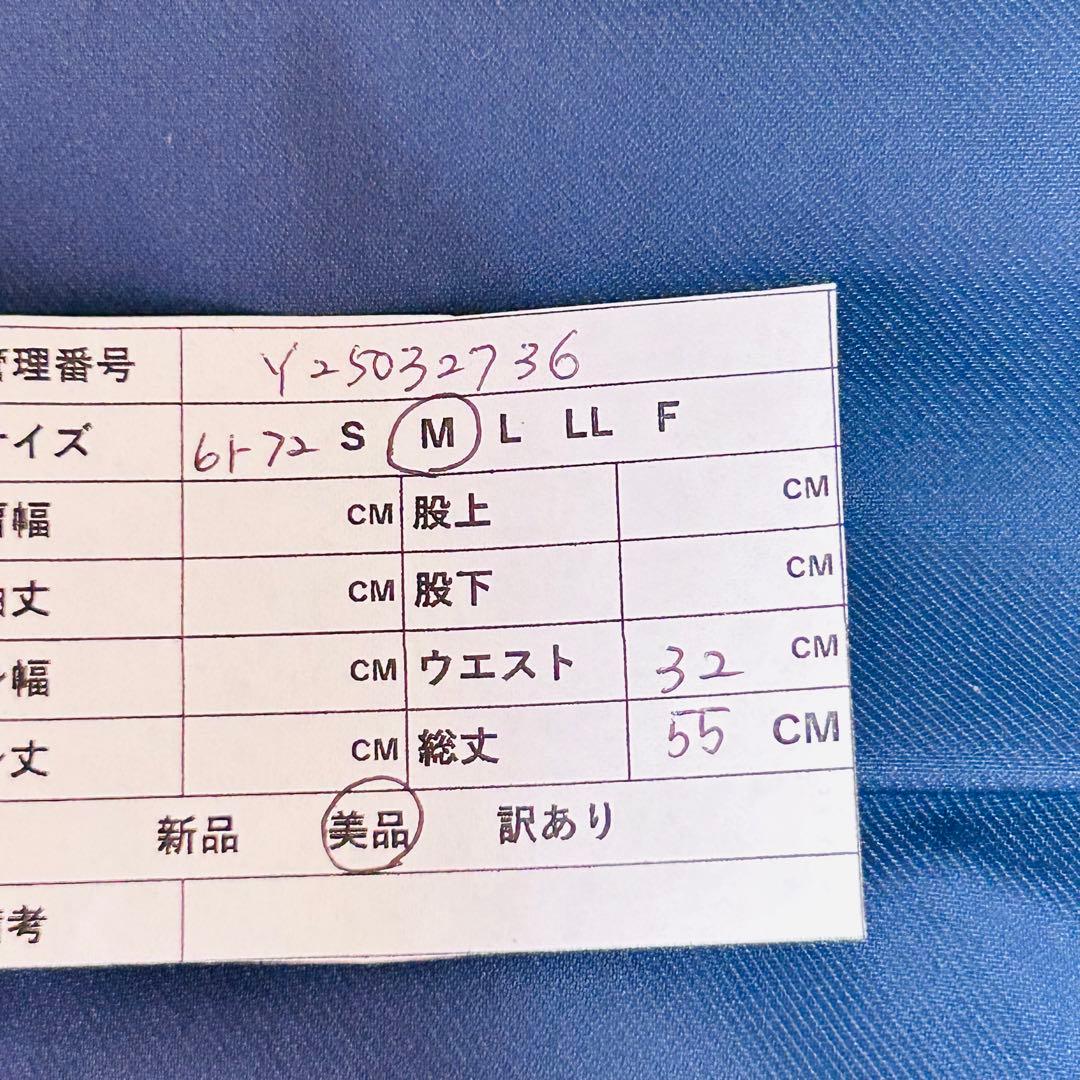 管理番号 Y25032736
サイズ 61-72 S M L LL F
肩幅 CM 股上 CM
袖丈 CM 股下 CM
身幅 CM ウエスト 32 CM
丈 CM 総丈 55 CM
新品 美品 訳あり
備考